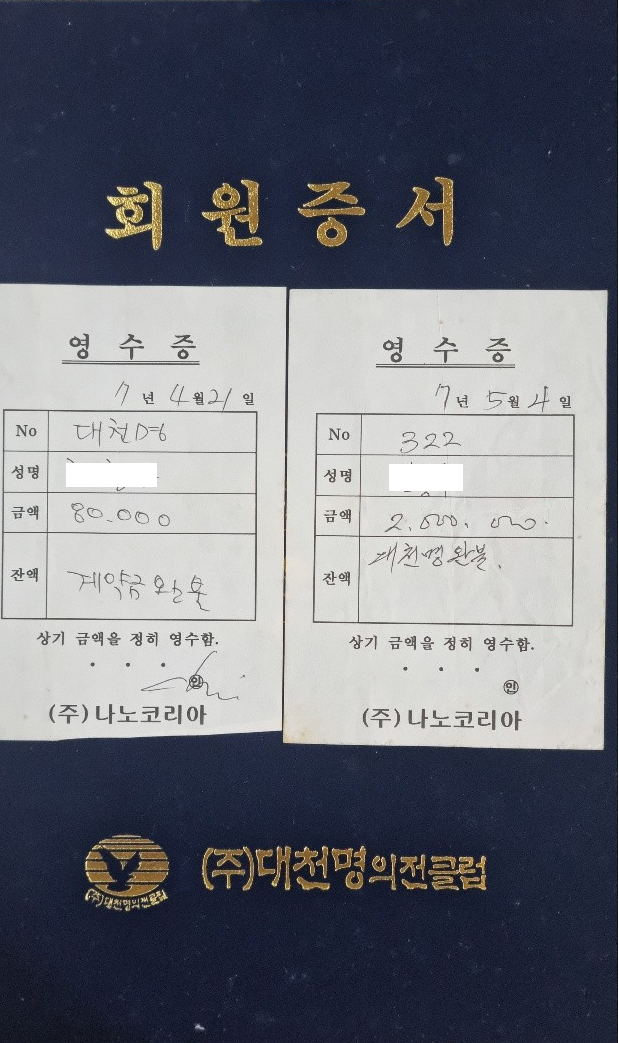 회원증서
영 수 증
7 년 4 월 21 일
No 대천명
성명
금액 80.000
잔액 계약금 완불
상기 금액을 정히 영수함.
. . .
인
(주) 나노코리아
영 수 증
7 년 5 월 4 일
No 322
성명
금액 2.000.000.
잔액 대천명 완불.
상기 금액을 정히 영수함.
. . .
인
(주) 나노코리아
(주)대천명의전클럽
(주)대천명의전클럽